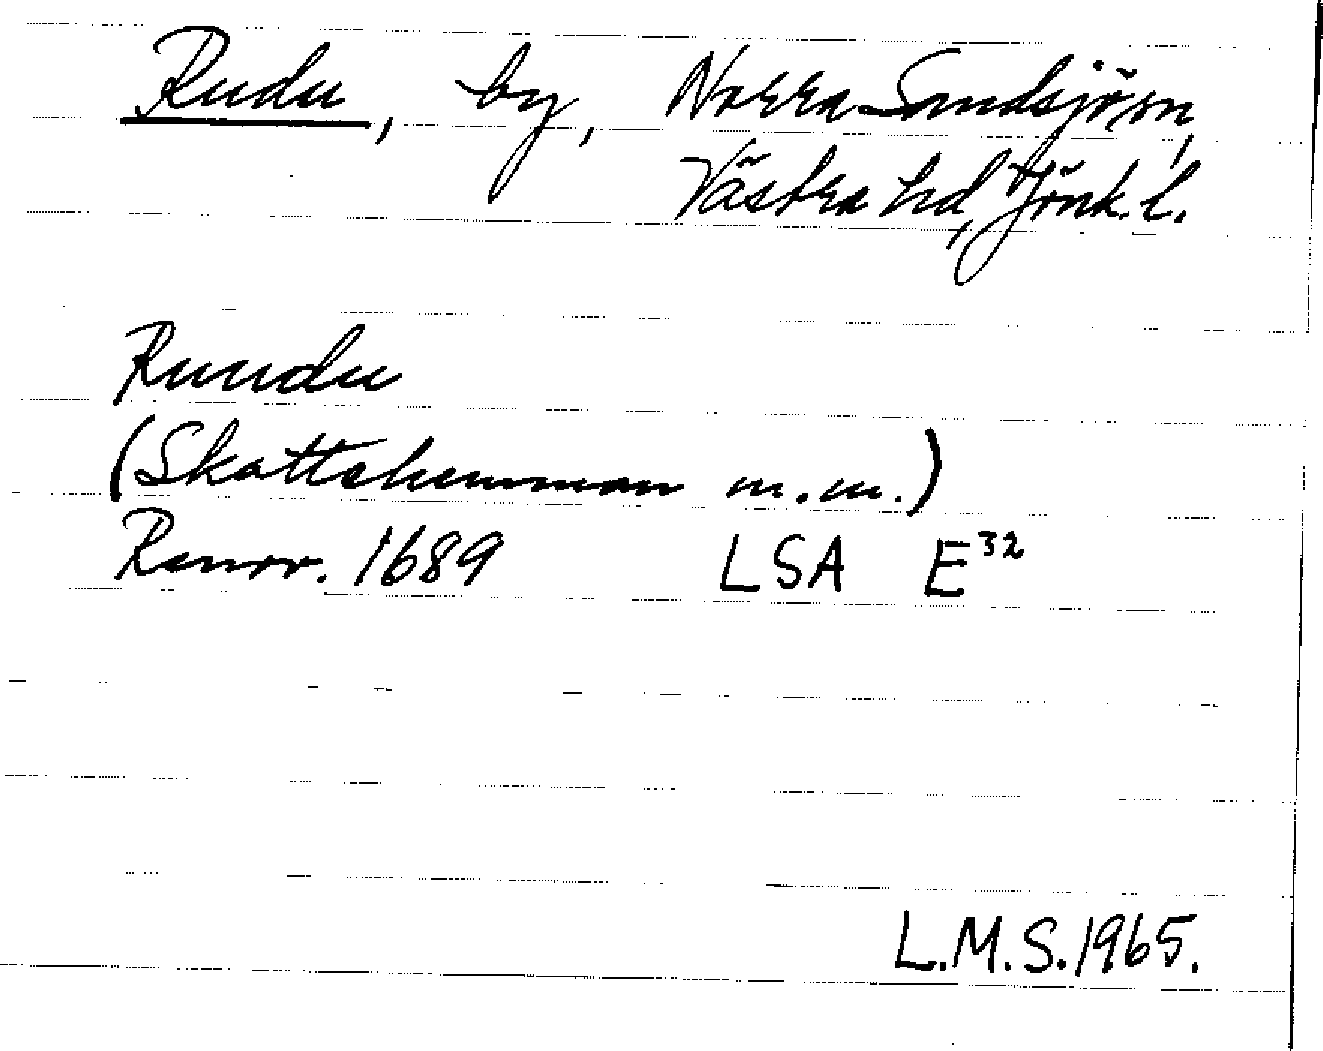 Rudu, by, Norra Sandsjö sn,
Västra hd, Jönk. l.
Rundu
(Skattehemman m.m.)
Renov. 1689 LSA E32
L.M.S. 1965.